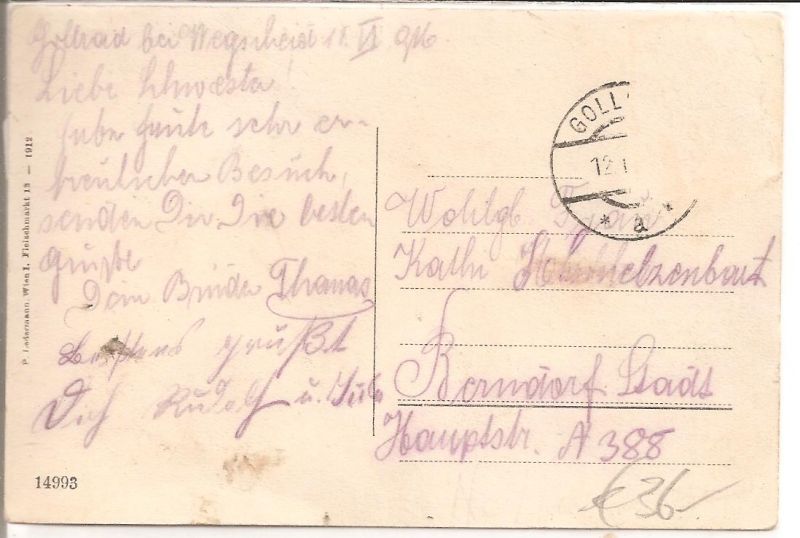 Gollrad bei Wegscheid 11. VI 916.
Liebe Schwester!
habe heute sehr er-
freulichen Besuch,
senden Dir die besten
Grüße
Dein Bruder Thomas
Bestens grüßt
Dich Rudolf u.
P. Ledermann, Wien I, Fleischmarkt 18 — 1912
14993
GOLL
12.
* a *
Wohlgb. Frau
Kathi
Berndorf Stadt
Hauptstr. A 388
€ 36-